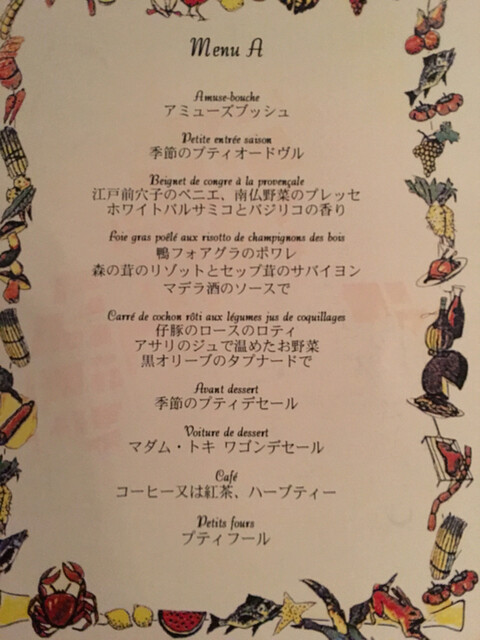 Menu A
Amuse-bouche
アミューズブッシュ
Petite entrée saison
季節のプティオードヴル
Beignet de congre à la provençale
江戸前穴子のベニエ、南仏野菜のブレッセ
ホワイトバルサミコとバジリコの香り
Foie gras poêlé aux risotto de champignons des bois
鴨フォアグラのポワレ
森の茸のリゾットとセップ茸のサバイヨン
マデラ酒のソースで
Carré de cochon rôti aux légumes jus de coquillages
仔豚のロースのロティ
アサリのジュで温めたお野菜
黒オリーブのタプナードで
Avant dessert
季節のプティデセール
Voiture de dessert
マダム・トキ ワゴンデセール
Café
コーヒー又は紅茶、ハーブティー
Petits fours
プティフール